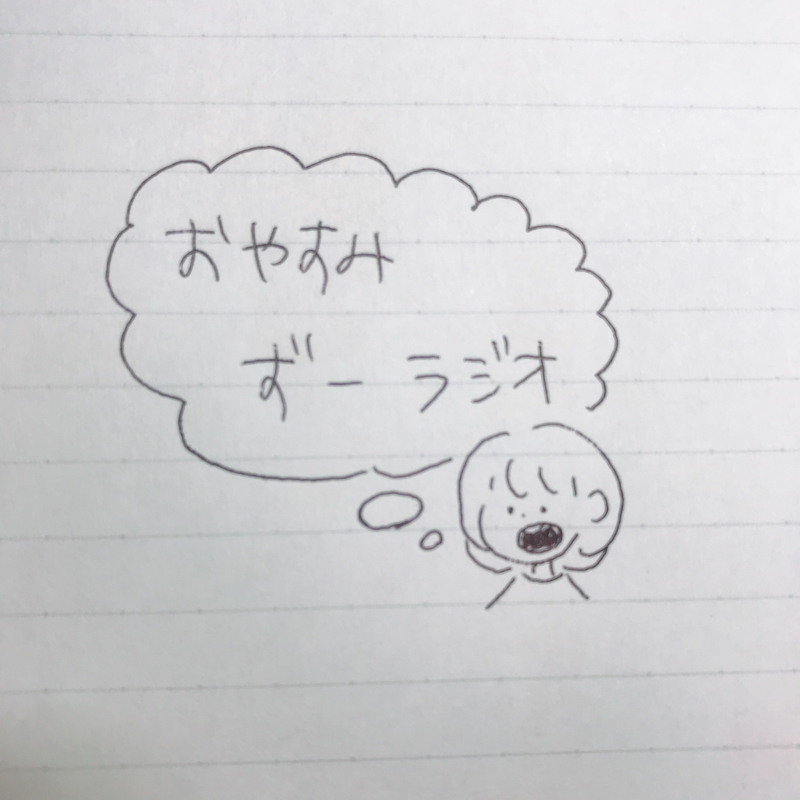 おやすみ
ずー ラジオ